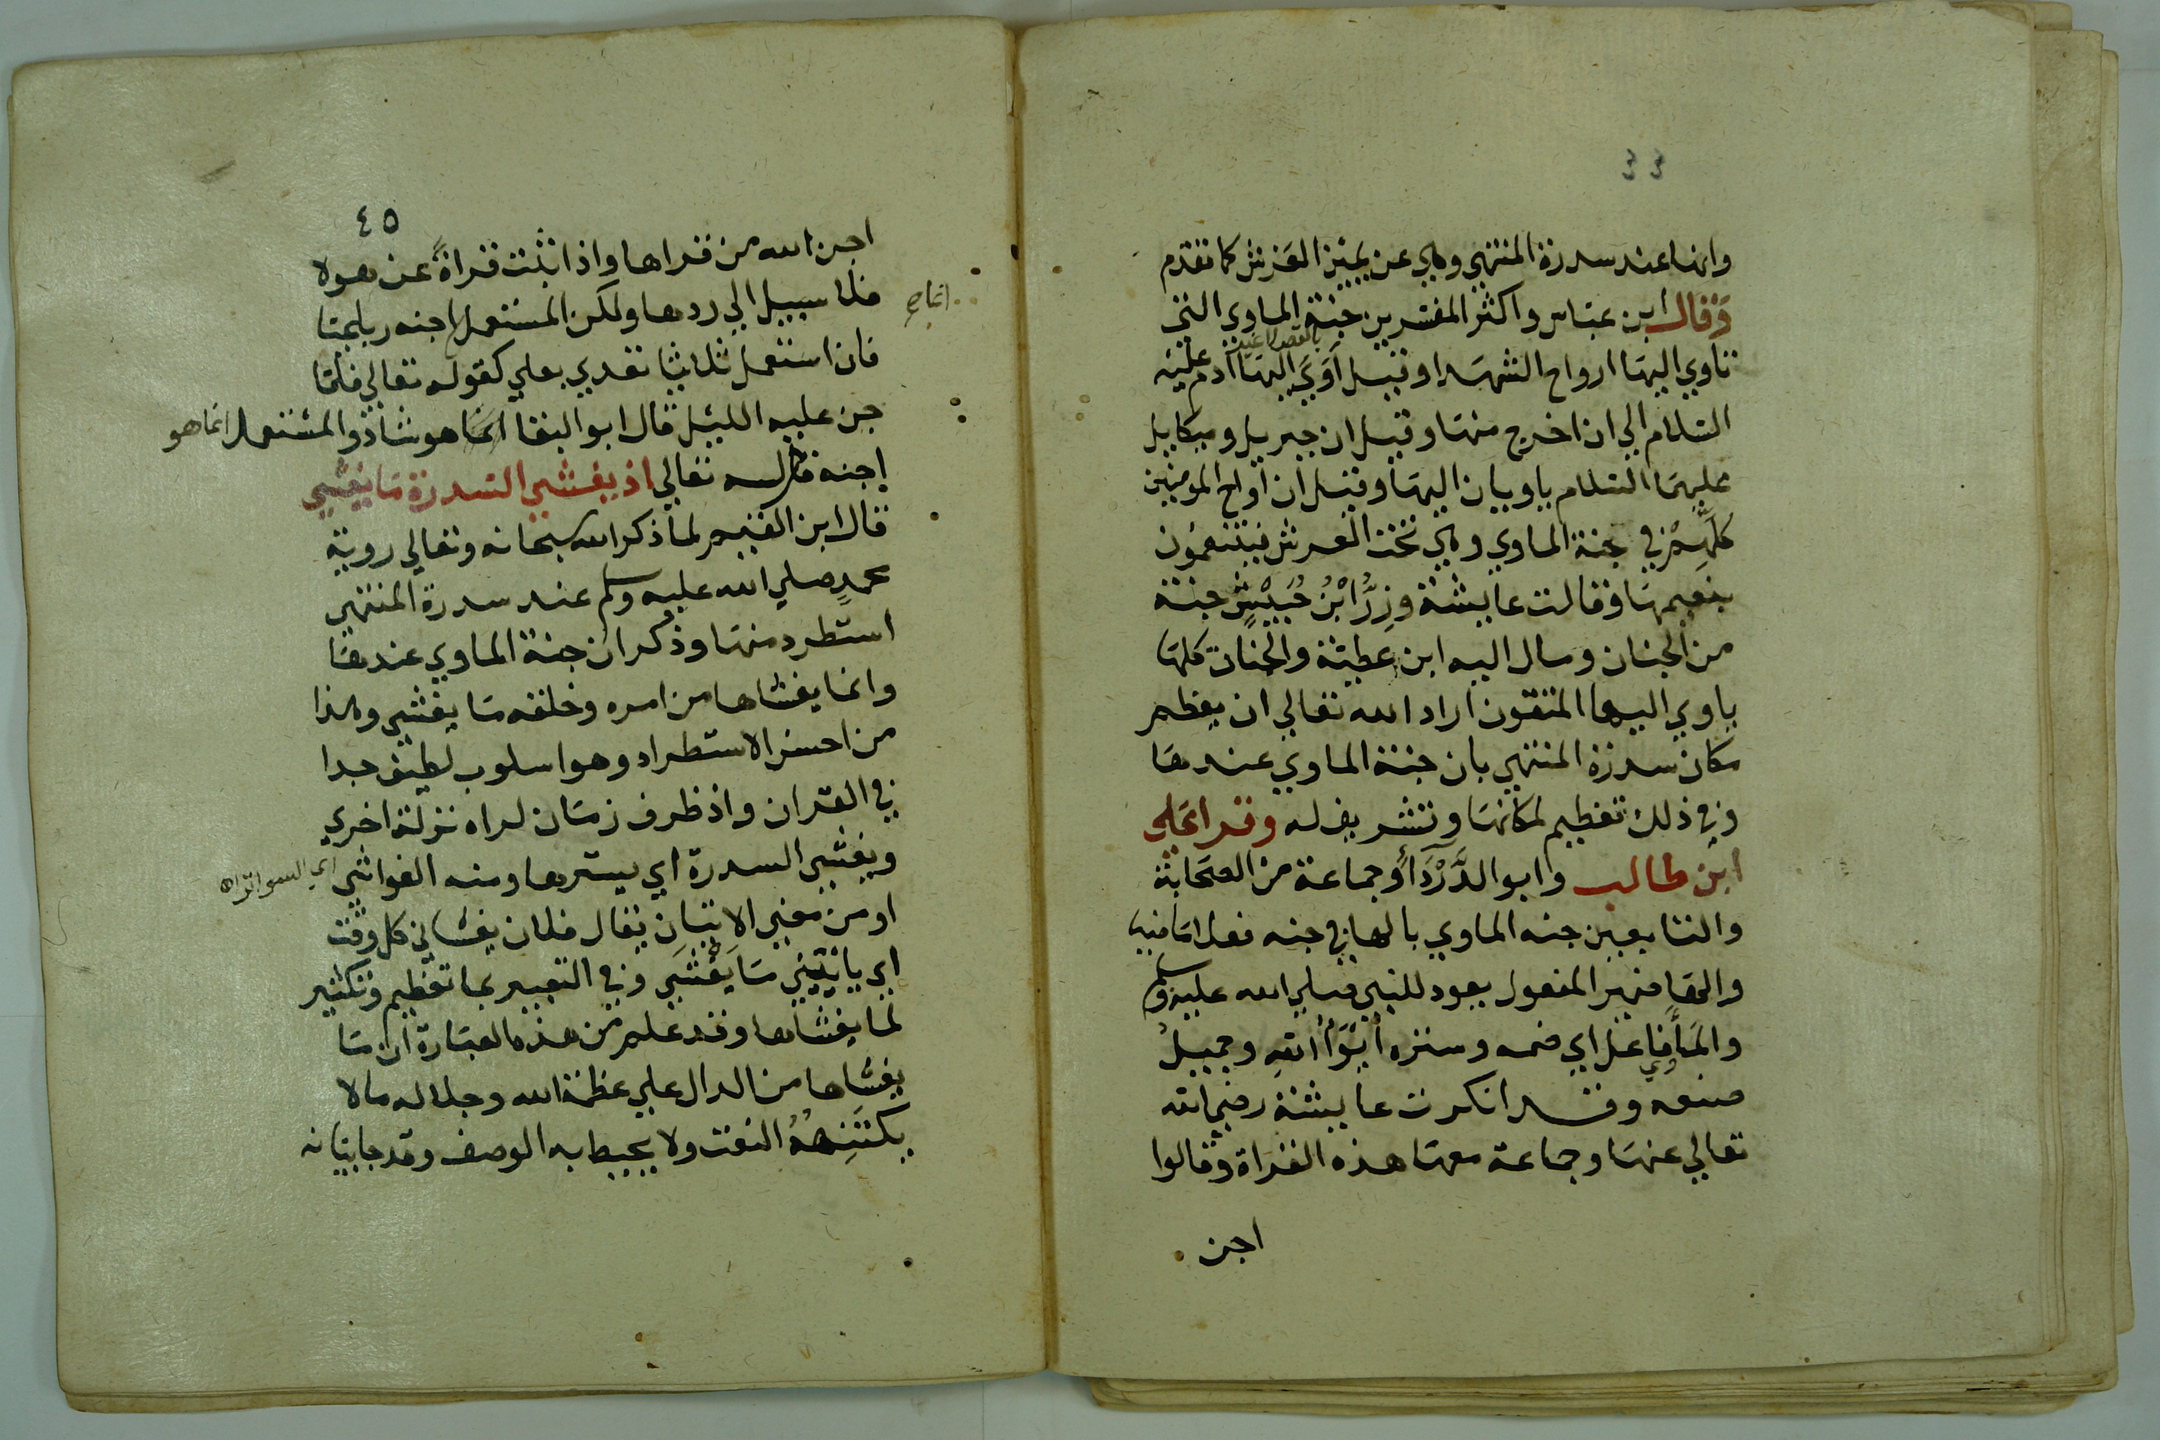 وانها عند سدرة المنتهي وهي عن يمين العرش كما تقدم
وقال ابن عباس واكثر المفسرين جنة الماوي التي
تاوي اليها ارواح الشهدا وقيل آوَي اليها آدم عليه
السلام الي ان اخرج منها وقيل ان جبريل وميكاييل
عليهما السلام ياويان اليها وقيل ان ارواح المومنين
كلهم في جنة الماوي وهي تحت العرش فيتنعمون
بنعيمها وقالت عايشة وزِرُّ ابْنُ حُبَيْشٍ جنة
من الجنان ومال اليه ابن عطية والجنان كلها
ياوي اليها المتقون اراد الله تعالي ان يعظم
مكان سدرة المنتهي بان جنة الماوي عندها
وفي ذلك تعظيم لمكانها وتشريف له وقرا علي
ابن طالب وابو الدَّرْدَا وجماعة من الصحابة
والتابعين جنه الماوي بالها في جنه فعل ماضي
والها ضمير المفعول يعود للنبي صلي الله عليه وسلم
والمأوي فاعل اي ضمه وستره ايوا الله وجميل
صنعه وقد انكرت عايشة رضي الله
تعالي عنها وجماعة معها هذه القراة وقالوا
اجن
٤٥
اجن الله من قراها واذا ثبت قراةً عن هولا
فلا سبيل الي ردها ولكن المستعمل اجنه رباعيا
فان استعمل ثلاثيا تعدي بعلي كقوله تعالي فلما
جن عليه الليل قال ابو البقا انما هو شاذ والمستعمل انما هو
اجنه قال تعالي اذ يغشي السدرة ما يغشي
قال ابن القيم لما ذكر الله سبحانه وتعالي روية
محمدٍ صلي الله عليه وسلم عند سدرة المنتهي
استطرد منها وذكر ان جنة الماوي عندها
وانما يغشاها من امره وخلقه ما يغشي وهذا
من احسن الاستطراد وهو اسلوب لطيف جدا
في القران واذ ظرف زمان لراه نزلة اخري
ويغشي السدرة اي يسترها ومنه الغواشي اي
او من معني الاتيان يقال فلان يغشاني كل وقت
اي ياتيني ما يَغْشَي وفي التعبير بما تعظيم وتكثير
لما يغشاها وقد علم من هذه العبارة ان ما
يغشاها من الدال علي عظمة الله وجلاله ما لا
يكتَنِهُهُ النعت ولا يحيط به الوصف وقد جا بيانه